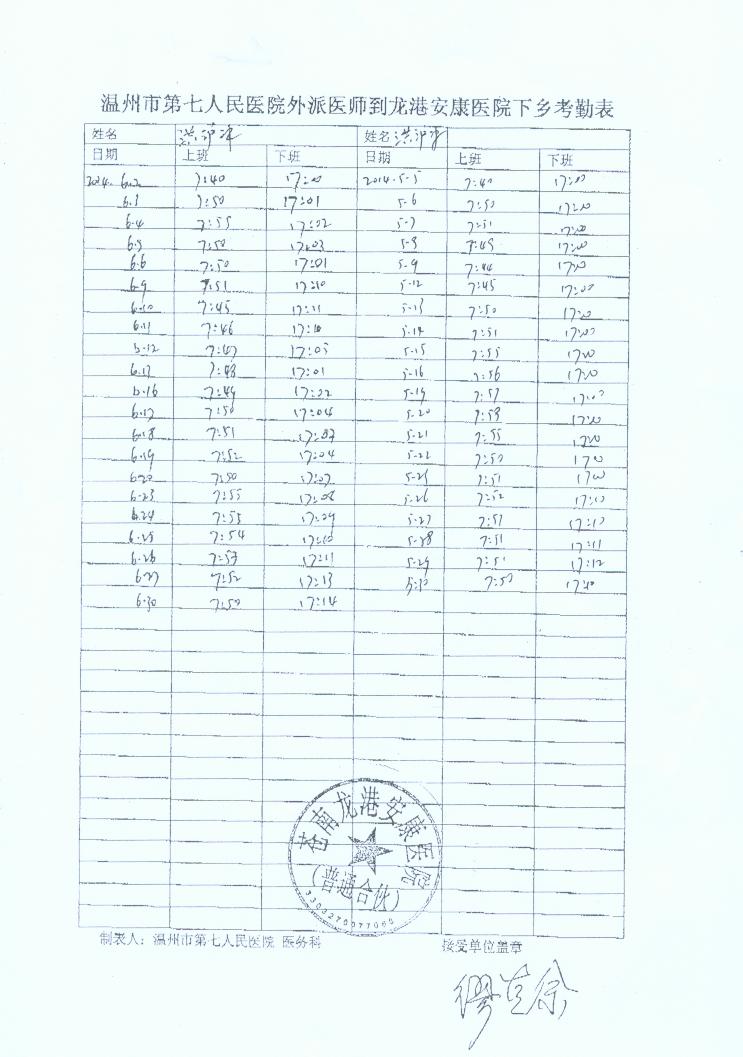 温州市第七人民医院外派医师到龙港安康医院下乡考勤表
姓名 姓名
日期 上班 下班 日期 上班 下班
2014. 6.2 7:40 17:00 2014.5-5 7:40 17:00
6.3 7:50 17:01 5-6 7:50 17:00
6.4 7:55 17:02 5-7 7:51 17:00
6.5 7:50 17:03 5-8 7:49 17:00
6.6 7:50 17:01 5-9 7:44 17:00
6.9 7:51 17:10 5-12 7:45 17:00
6.10 7:45 17:11 5-13 7:50 17:00
6.11 7:46 17:10 5-14 7:51 17:00
6.12 7:47 17:05 5-15 7:55 17:00
6.13 7:48 17:01 5-16 7:56 17:00
6.16 7:49 17:02 5-19 7:57 17:00
6.17 7:50 17:04 5-20 7:58 17:00
6.18 7:51 17:07 5-21 7:55 17:00
6.19 7:52 17:04 5-22 7:50 17:00
6.20 7:50 17:07 7:51 17:00
6.23 7:55 17:08 5-26 7:52 17:10
6.24 7:55 17:09 5-27 7:51 17:10
6.25 7:54 17:10 5-28 7:51 17:11
6.26 7:57 17:11 5-29 7:51 17:12
6.27 7:52 17:13 5-30 7:50 17:10
6.30 7:50 17:14
苍南龙港安康医院
(普通合伙)
3303270077060
制表人：温州市第七人民医院 医务科 接受单位盖章